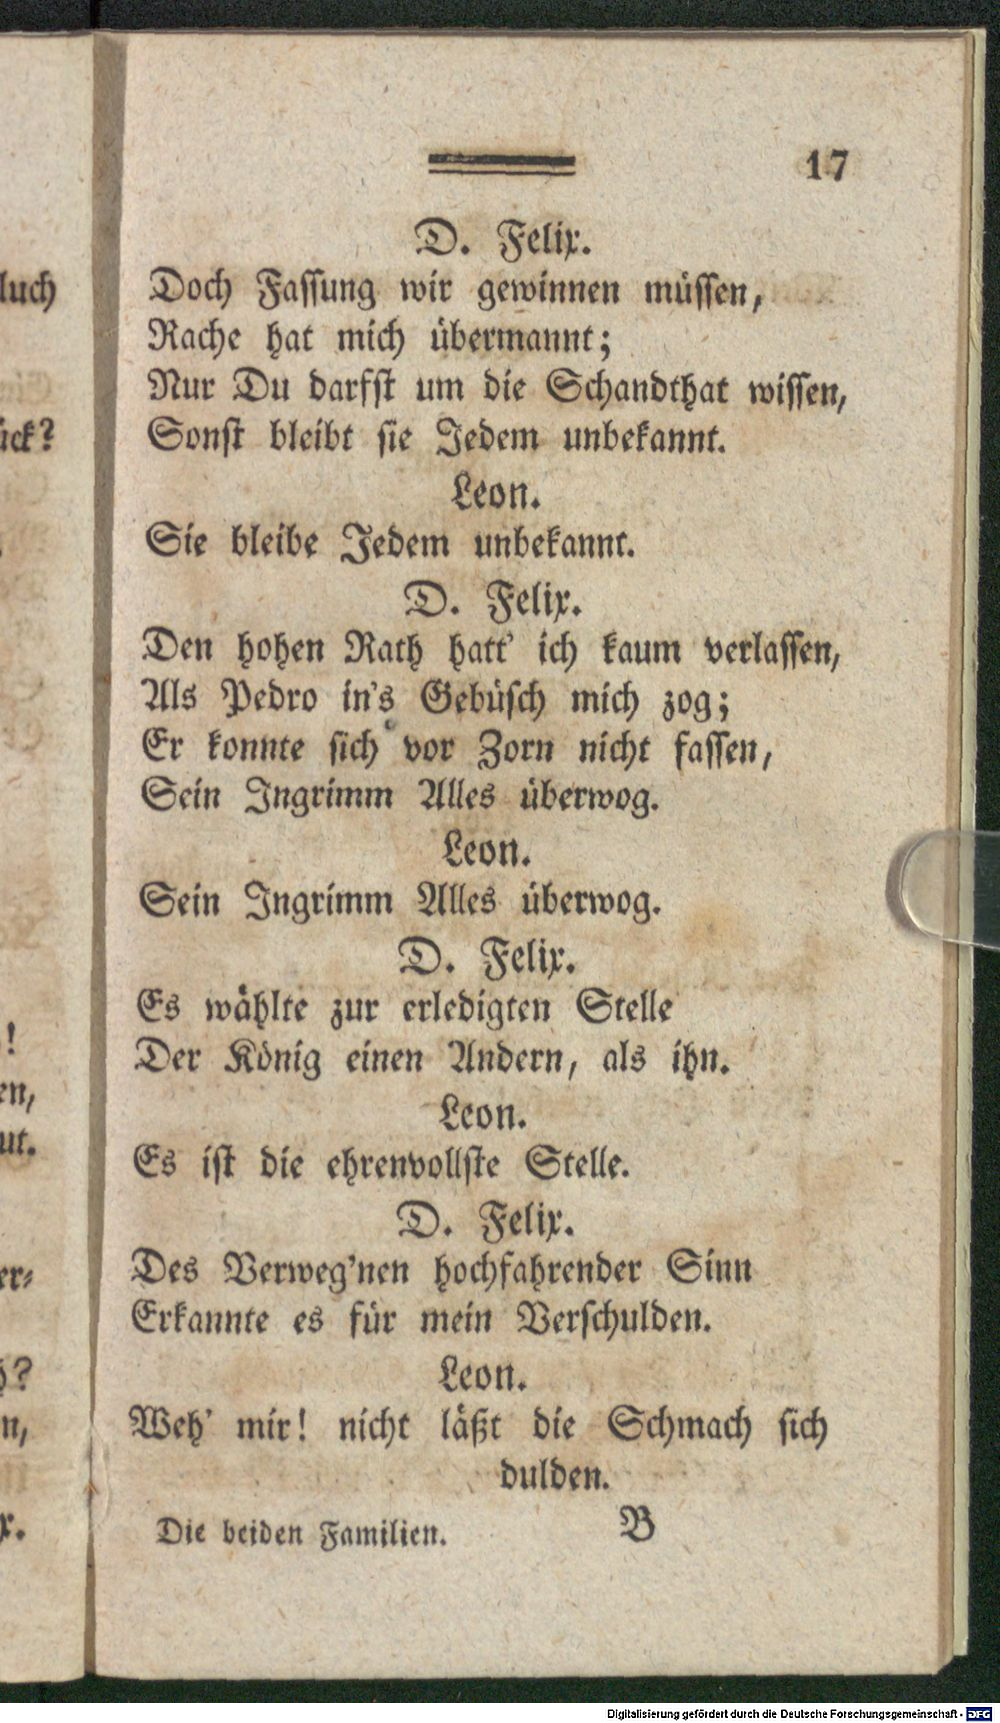 17
D. Felix.
Doch Fassung wir gewinnen müssen,
Rache hat mich übermannt;
Nur Du darfst um die Schandthat wissen,
Sonst bleibt sie Jedem unbekannt.
Leon.
Sie bleibe Jedem unbekannt.
D. Felix.
Den hohen Rath hatt' ich kaum verlassen,
Als Pedro in's Gebüsch mich zog;
Er konnte sich vor Zorn nicht fassen,
Sein Ingrimm Alles überwog.
Leon.
Sein Ingrimm Alles überwog.
D. Felix.
Es wählte zur erledigten Stelle
Der König einen Andern, als ihn.
Leon.
Es ist die ehrenvollste Stelle.
D. Felix.
Des Verweg'nen hochfahrender Sinn
Erkannte es für mein Verschulden.
Leon.
Weh' mir! nicht läßt die Schmach sich
dulden.
Die beiden Familien. B
Digitalisierung gefördert durch die Deutsche Forschungsgemeinschaft - DFG